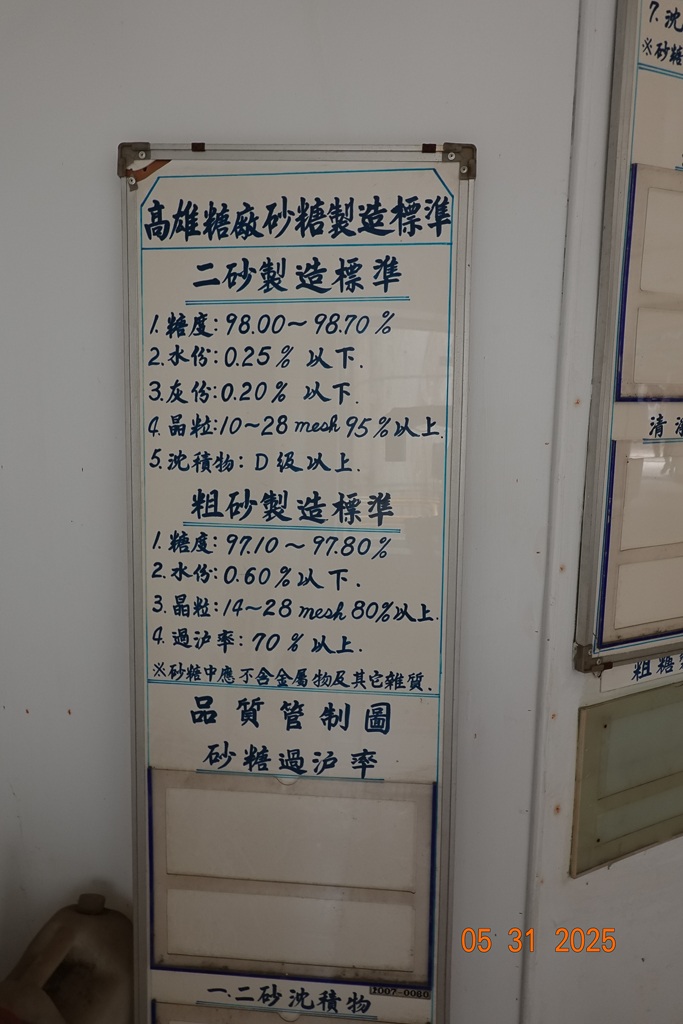 高雄糖廠砂糖製造標準
二砂製造標準
1. 糖度: 98.00～98.70%
2. 水份: 0.25% 以下.
3. 灰份: 0.20% 以下.
4. 晶粒: 10～28 mesh 95%以上.
5. 沈積物: D 級以上.
粗砂製造標準
1. 糖度: 97.10～97.80%
2. 水份: 0.60%以下.
3. 晶粒: 14～28 mesh 80%以上.
4. 過沪率: 70% 以上.
※砂糖中應不含金屬物及其它雜質.
品質管制圖
砂糖過沪率
1007-0080
一.二砂沈積物
7. 沈
※砂糖
清
粗糖
05 31 2025